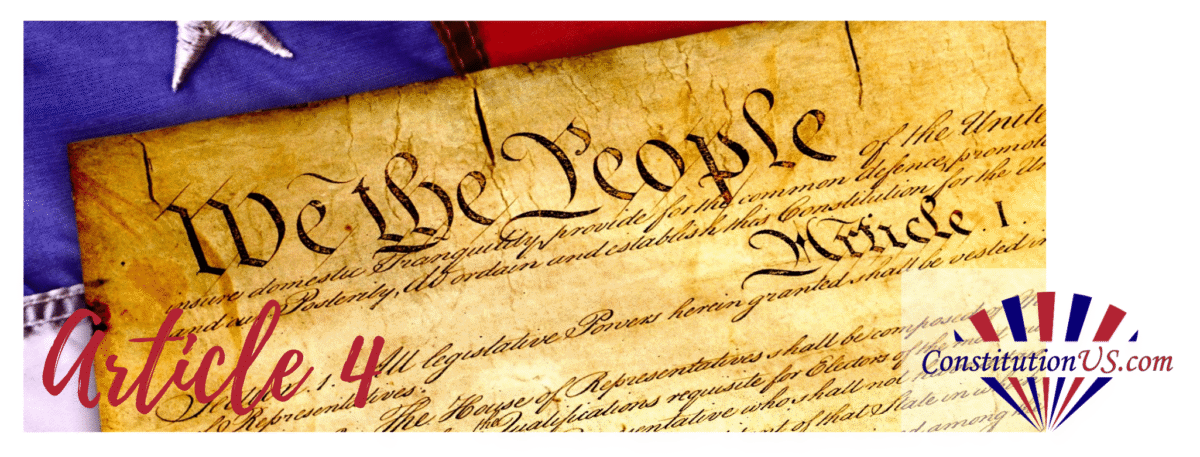 We the People of the Unite
insure domestic Tranquility, provide for the common defence, promote
and our Posterity, do ordain and establish this Constitution for the Un
Article. I.
Section. 1. All legislative Powers herein granted shall be vested in
of Representatives.
The House of Representatives shall be composed of M
the Qualifications requisite for Electors of the most nu
Representative who shall not ha
of that State in w
among the
Article 4
ConstitutionUS.com